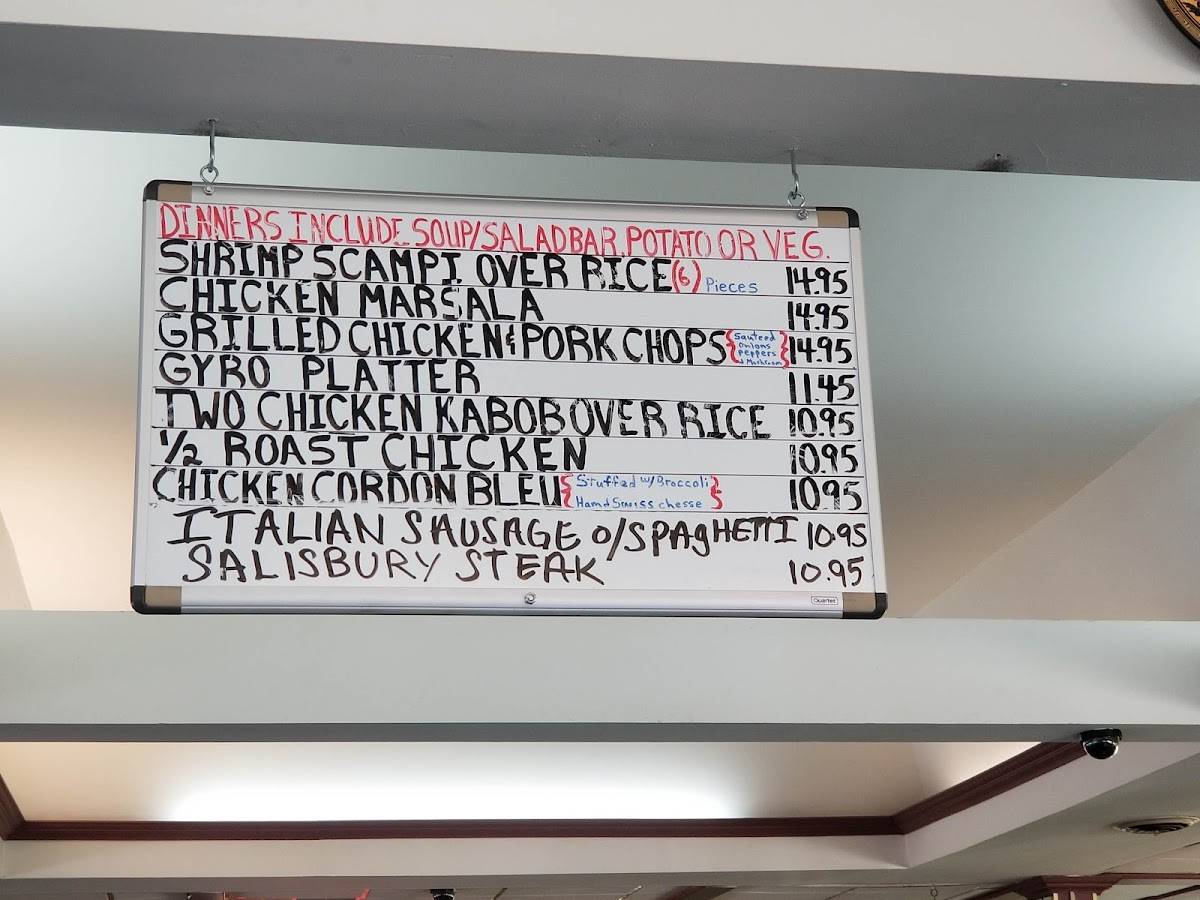 DINNERS INCLUDE SOUP/SALAD BAR, POTATO OR VEG.
SHRIMP SCAMPI OVER RICE (6) Pieces 14.95
CHICKEN MARSALA 14.95
GRILLED CHICKEN & PORK CHOPS {Sauteed onions peppers & Mushroom} 14.95
GYRO PLATTER 11.45
TWO CHICKEN KABOB OVER RICE 10.95
1/2 ROAST CHICKEN 10.95
CHICKEN CORDON BLEU {Stuffed w/Broccoli Ham & Swiss chesse} 10.95
ITALIAN SAUSAGE o/SPAgHETTI 10.95
SALISBURY STEAK 10.95
Quartet